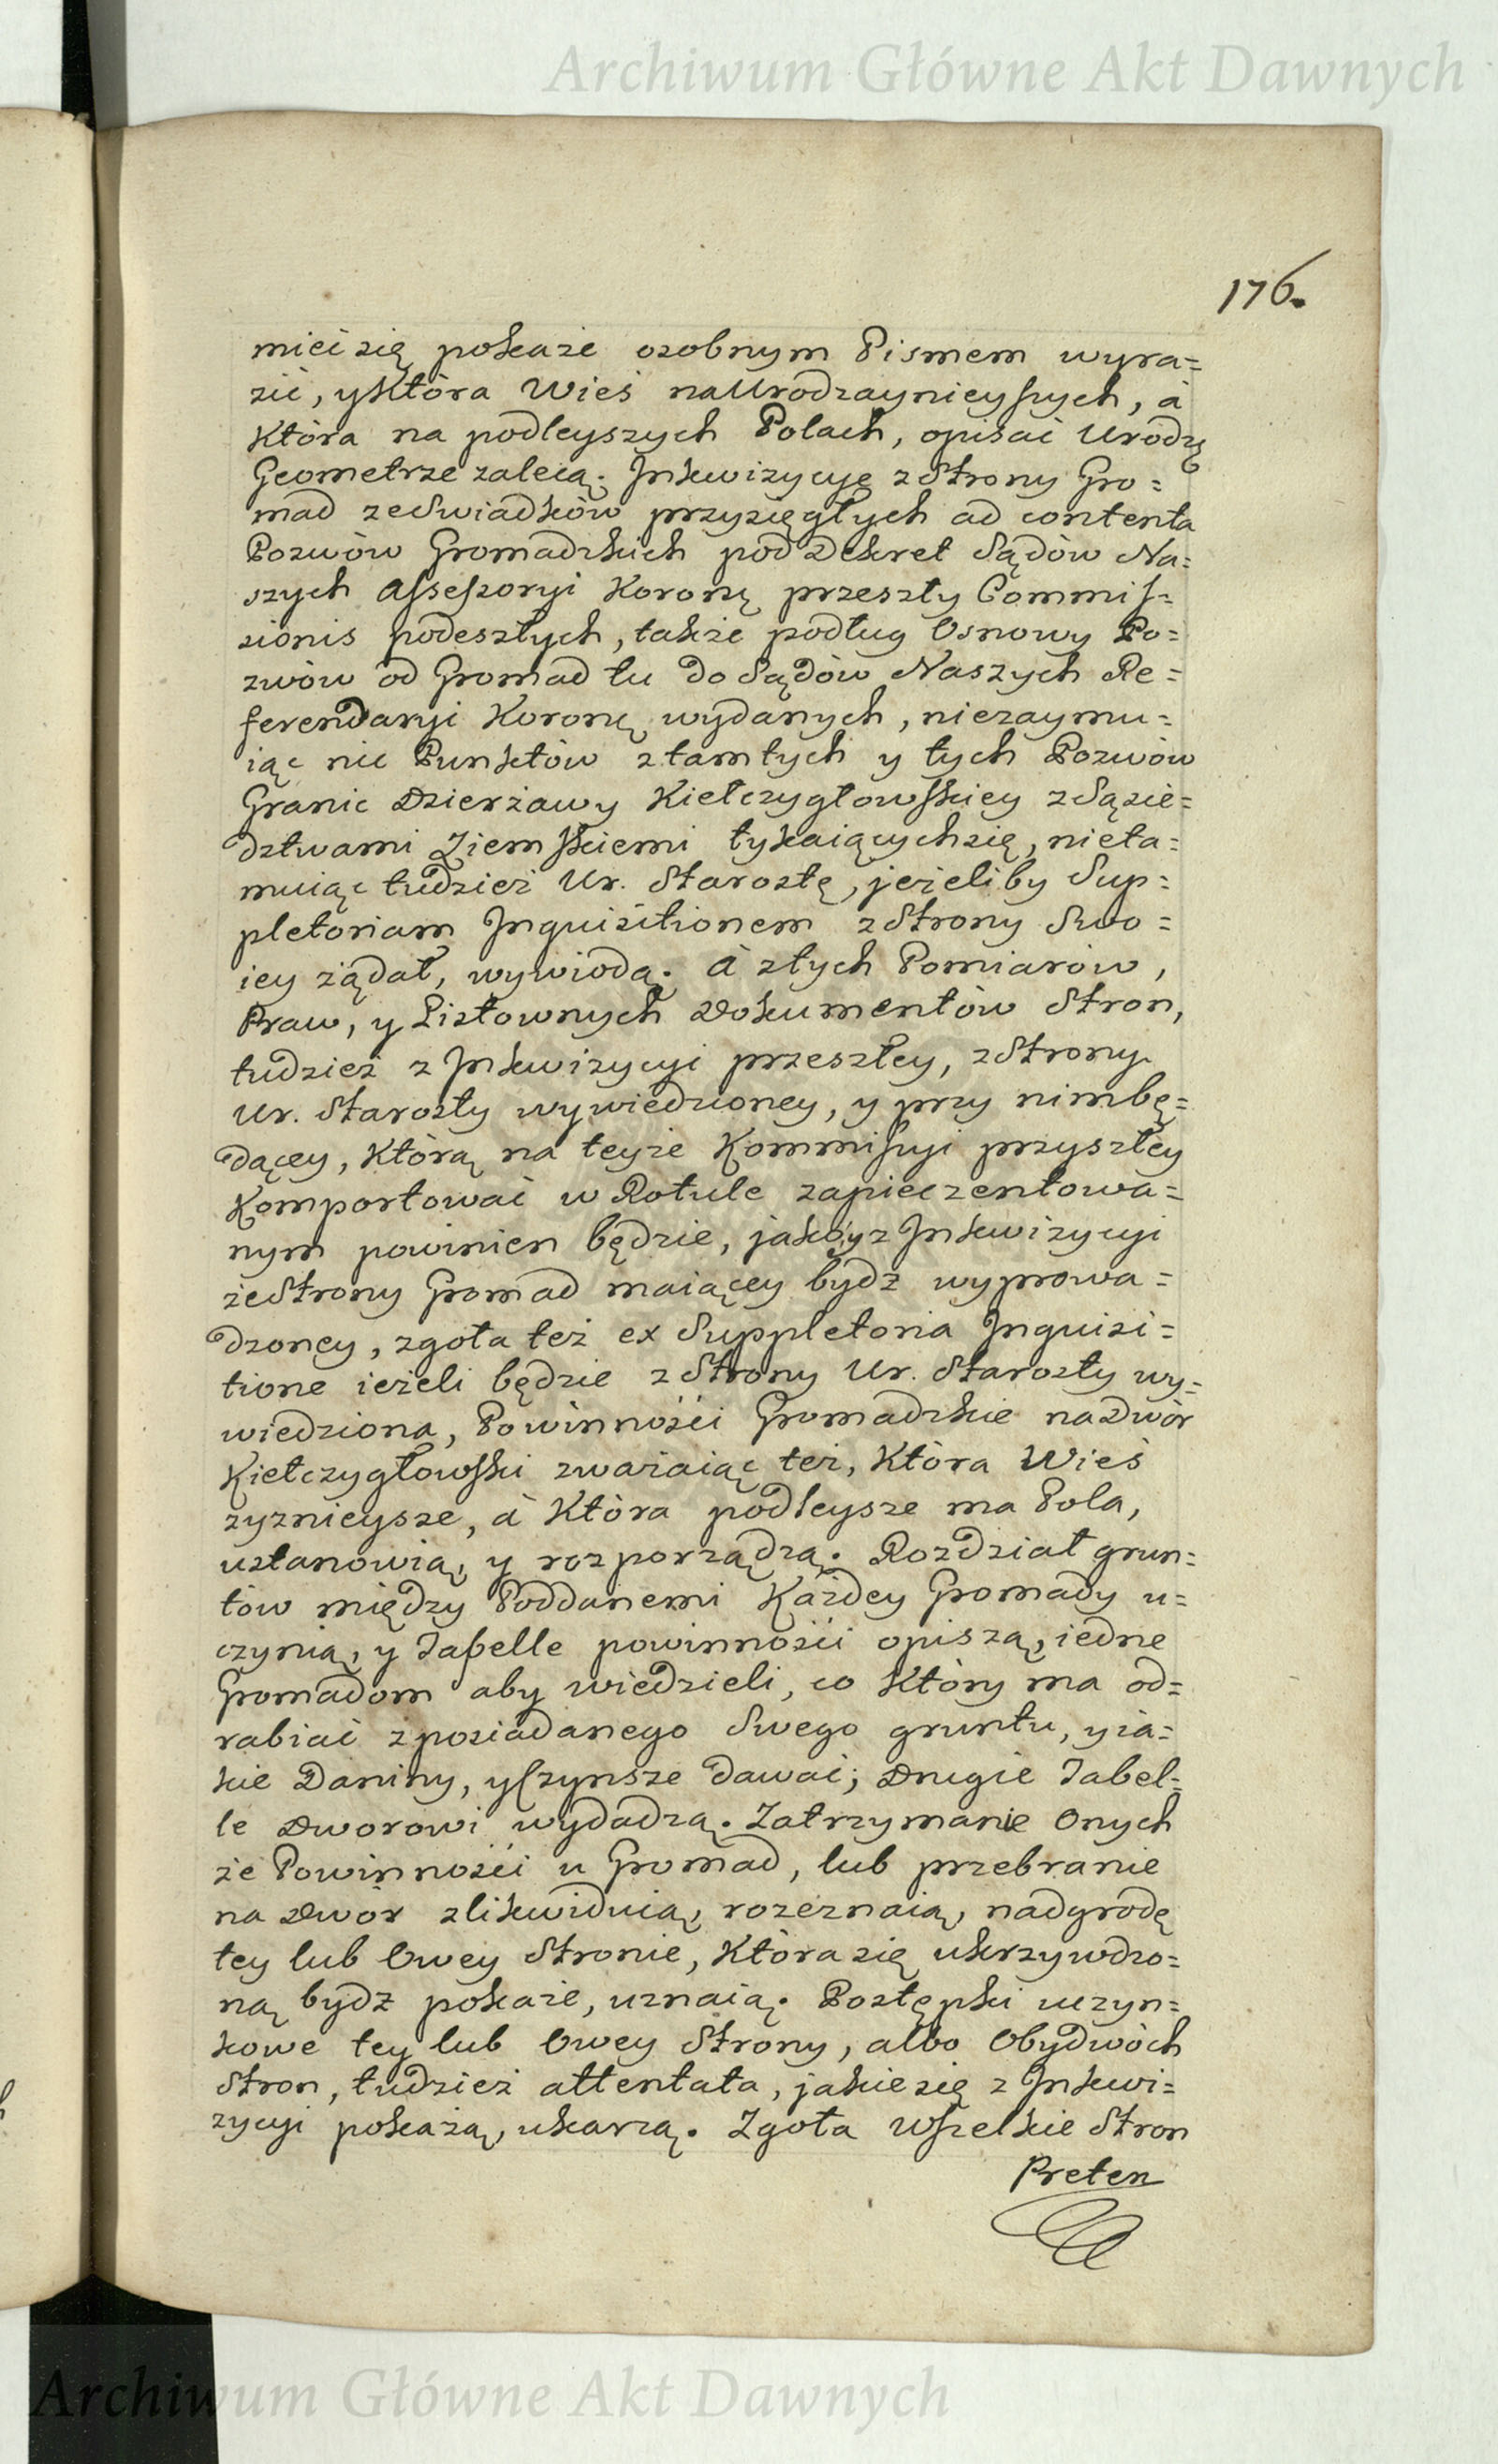 Archiwum Główne Akt Dawnych
176.
mieć się pokaże osobnym Pismem wyra=
zić, y która Wieś na Urodzaynieyszych, á
która na podleyszych Polach, opisać Urodz:
Geometrze zalecą. Inkwizycyę z Strony Gro=
mad ze Swiadków przysięgłych ad contenta
Pozwów Gromadzkich pod Dekret Sądów Na=
szych Assessoryi Koronę przeszły Commis=
sionis podeszłych, także podług Osnowy Po=
zwów od Gromad tu do Sądów Naszych Re=
ferendaryi Koronę wydanych, niezaymu=
iąc nic Punktów z tamtych y tych Pozwów
Granic Dzierżawy Kiełczygłowskiey z Sąsie=
dztwami Ziemskiemi tykaiących się, nieta=
muiąc tudzież Ur. Starostę, jeżeliby Sup=
pletoriam Inquisitionem z Strony Swo=
iey żądał, wywiodą. á z tych Pomiarów,
Praw, y Listownych Dokumentów Stron,
tudzież z Inkwizycyi przeszłey, z Strony
Ur. Starosty wywiedzioney, y przy nim bę=
dącey, którą na teyże Kommissyi przyszłey
Komportować w Rotule zapieczentowa=
nym powinien będzie, jako y z Inkwizycyi
ze Strony Gromad maiącey bydz wyprowa=
dzoney, zgoła też ex Suppletoria Inquisi=
tione ieżeli będzie z Strony Ur. Starosty wy=
wiedziona, Powinności Gromadzkie na Dwór
Kiełczygłowski zważaiąc też, która Wieś
zyznieysze, á która podleysze ma Pola,
ustanowią, y rozporządzą. Rozdział grun=
tów między Poddanemi Każdey Gromady u=
czynią, y Tabelle powinności opiszą, iedne
Gromadom aby wiedzieli, co który ma od=
rabiać z posiadanego Swego gruntu, y ia=
kie Daniny, y Czynsze dawać; Drugie Tabel=
le Dworowi wydadzą. Zatrzymanie Onych
że Powinności u Gromad, lub przebranie
na Dwór zlikwiduią, rozeznaią, nadgrodę
tey lub Owey Stronie, która się ukrzywdzo=
ną bydz pokaże, uznaią. Postępki uczyn=
kowe tey lub Owey Strony, albo Obydwóch
Stron, tudzież attentata, jakie się z Inkwi=
zycyi pokażą, ukarzą. Zgoła Wszelkie Stron
Preten
Archiwum Główne Akt Dawnych